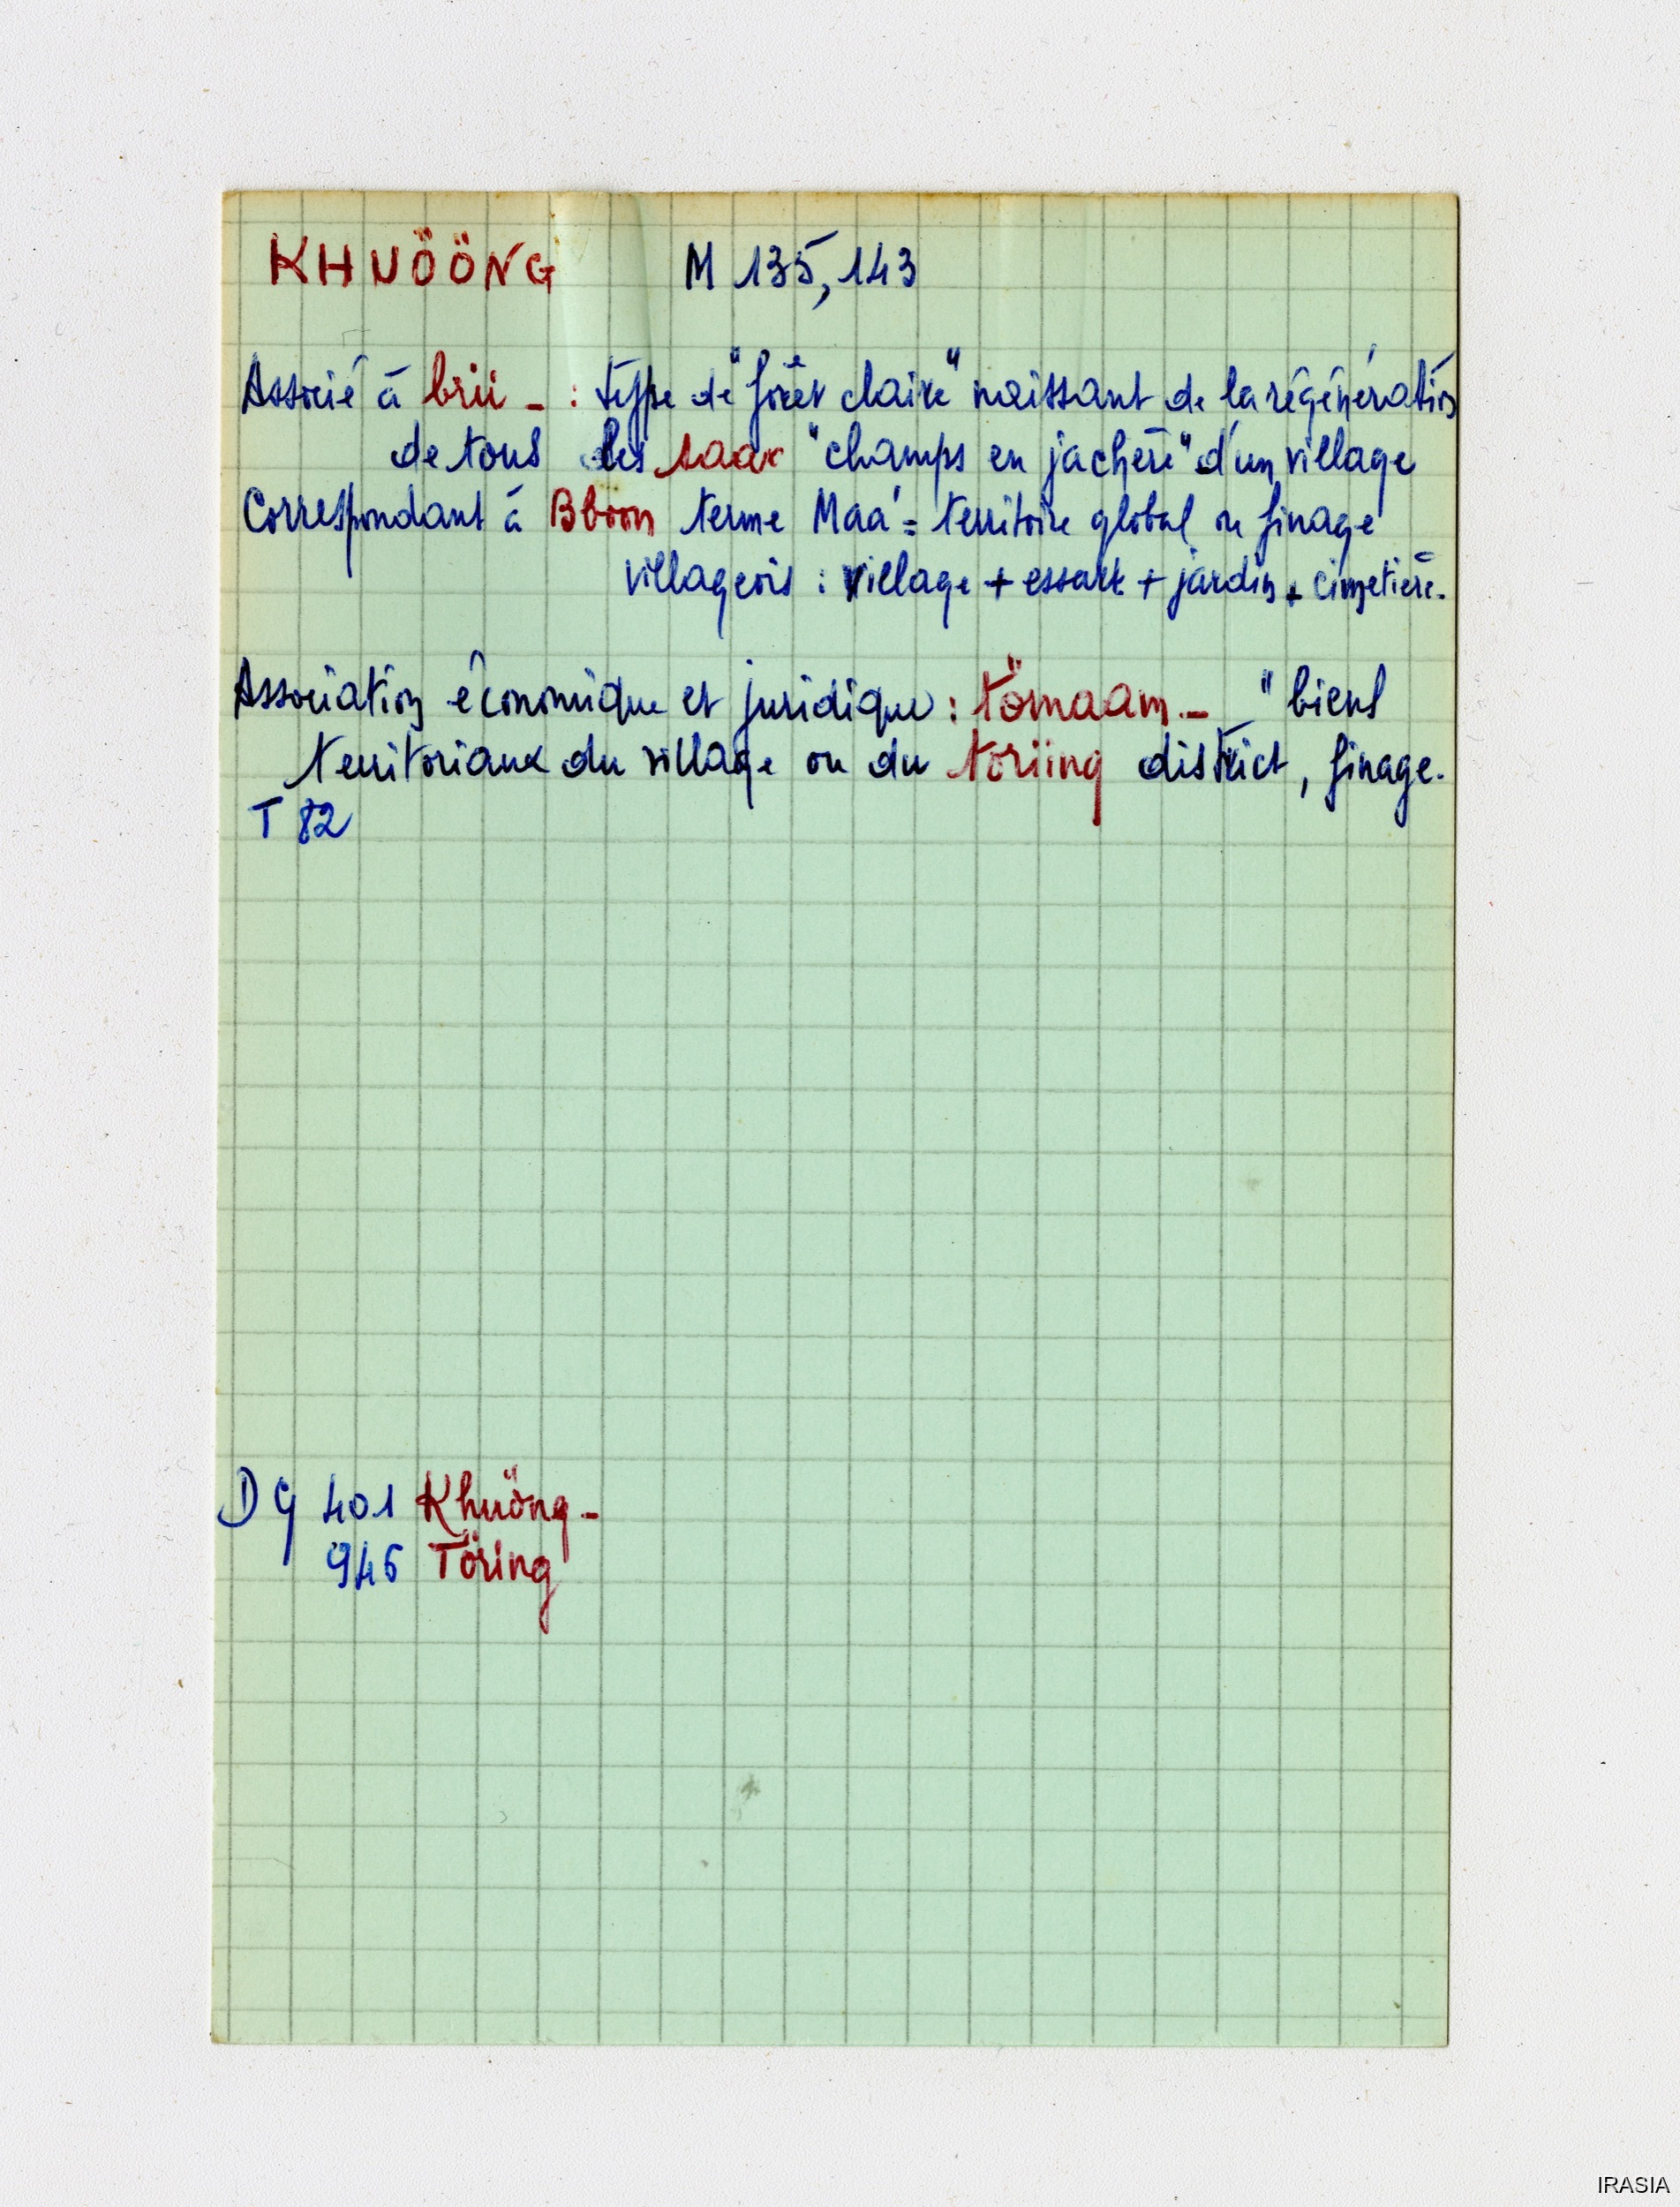 KHUÖÖNG M 135, 143
Associé à brii _ : type de "forêt claire" naissant de la régénération
de tous les saar "champs en jachère" d'un village
Correspondant à Bboon terme Maa' = territoire global ou finage
villageois : village + essart + jardin + cimetière.
Association économique et juridique : tömaam _ "biens
territoriaux du village ou du toriing district, finage.
T 82
DG 401 Khuöng -
946 Töring
IRASIA